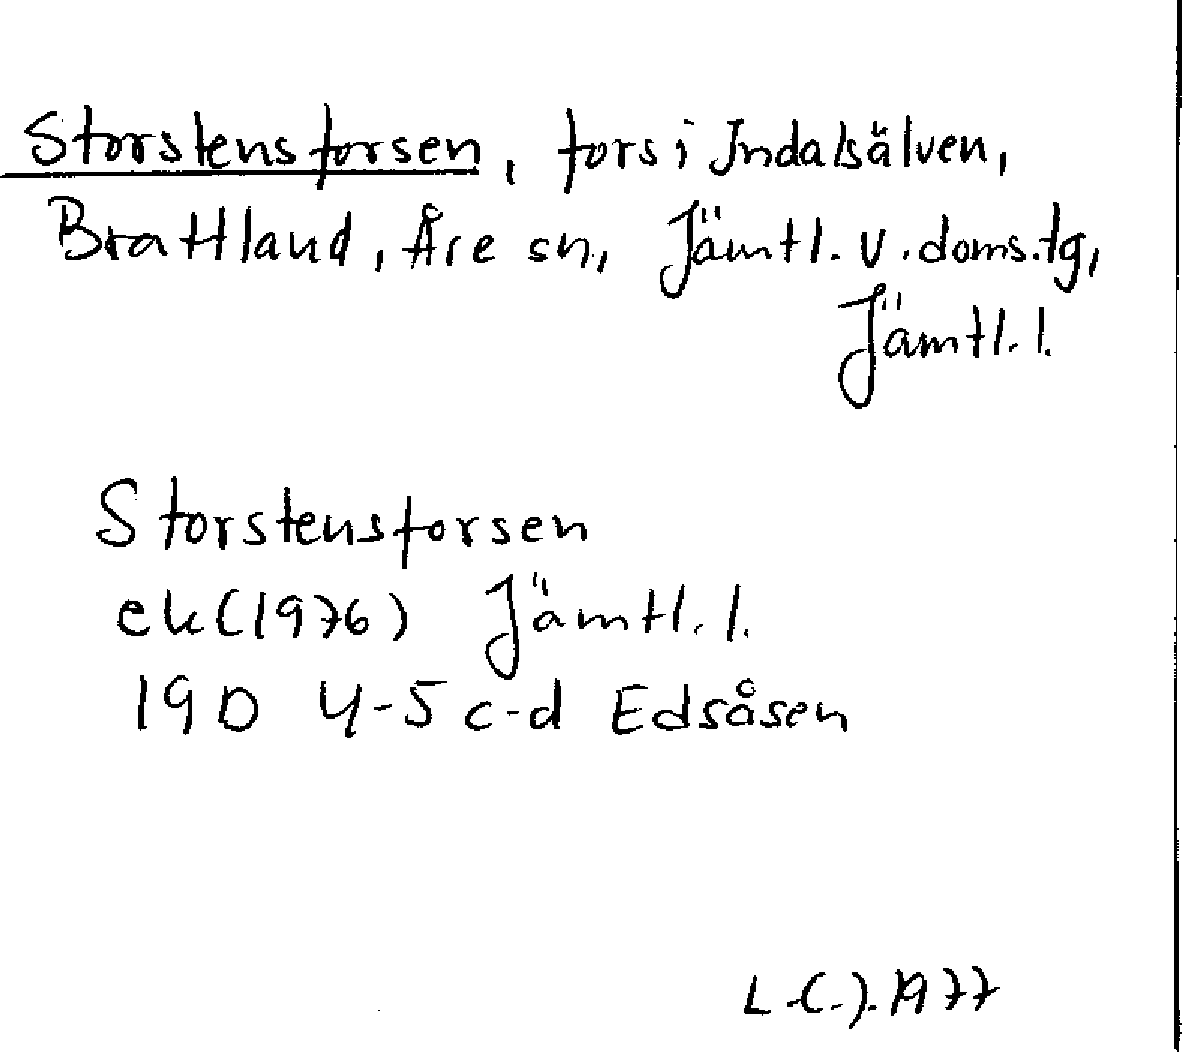 Storstensforsen, fors i Indalsälven,
Brattland, Åre sn, Jämtl. v. doms.tg,
Jämtl. l.
Storstensforsen
ek (1976) Jämtl. l.
19D 4-5 c-d Edsåsen
1977